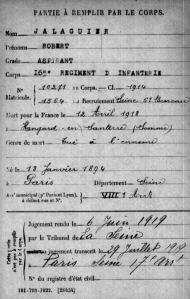 PARTIE À REMPLIR PAR LE CORPS.
Nom JALAGUIER
Prénoms ROBERT
Grade ASPIRANT
Corps 16me REGIMENT D INFANTERIE
N° Matricule. 10271 au Corps. — Cl. 1914
1564 au Recrutement Seine 5e Bureau
Mort pour la France le 12 Avril 1918
à Hangard en Santerre (Somme)
Genre de mort Tué à l'ennemi
Né le 13 janvier 1894
à Paris Département Seine
Arr municipal (pr Paris et Lyon), à défaut rue et N°. VIII Arrt
Jugement rendu le 6 Juin 1919
par le Tribunal de La Seine
jugement transcrit le 29 Juillet 1919
Paris Seine 17e Arrt
N° du registre d'état civil